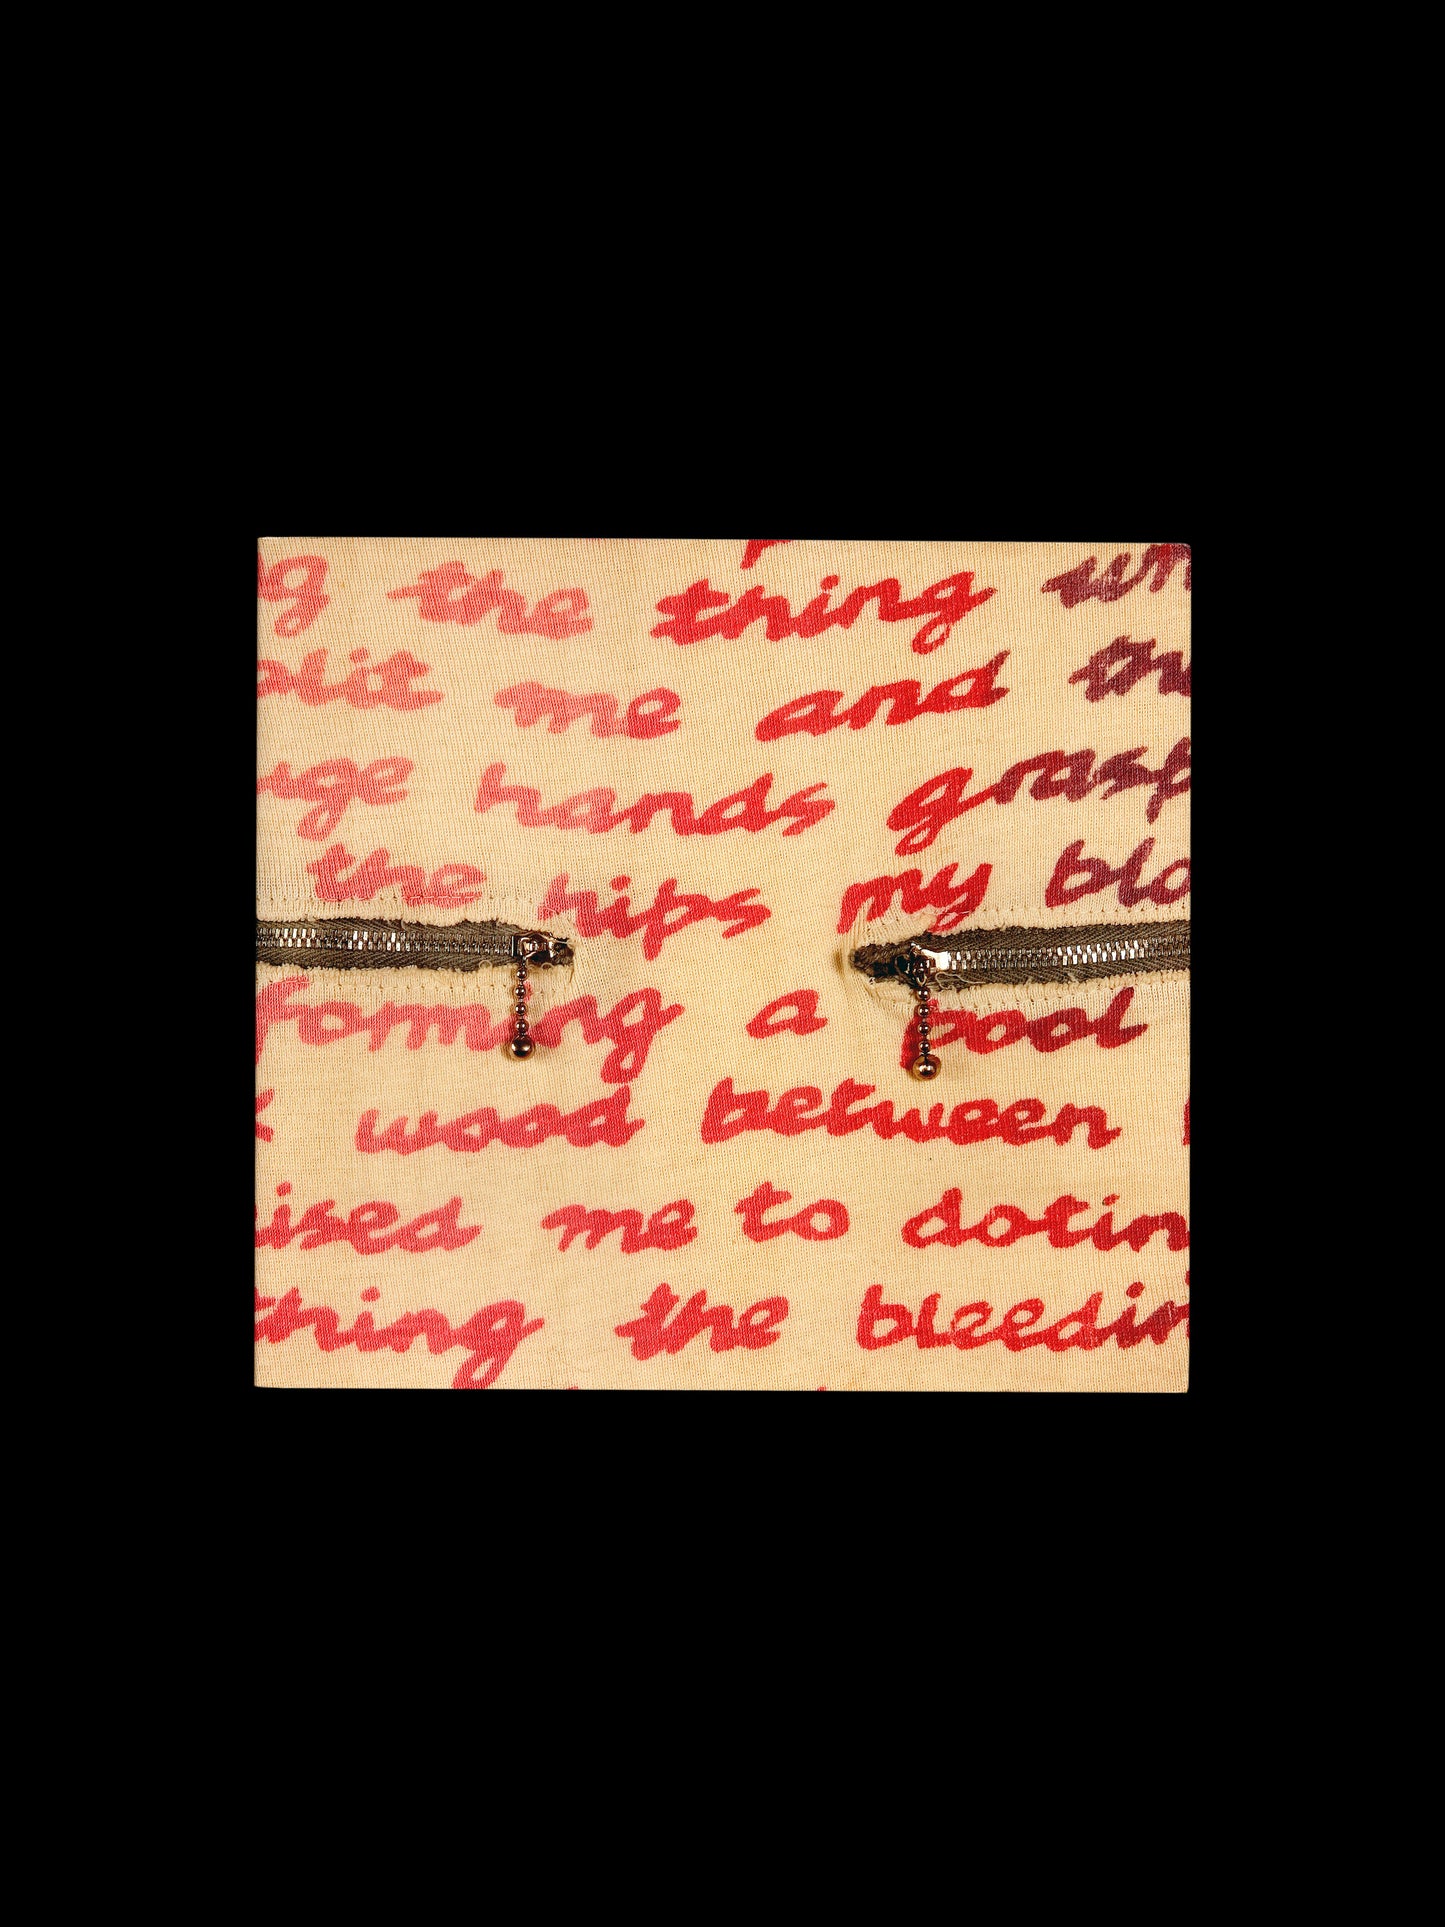 g the thing
me and
hands grasp
the hips my blo
forming a pool
wood between
ised me to dotin
thing the bleedin